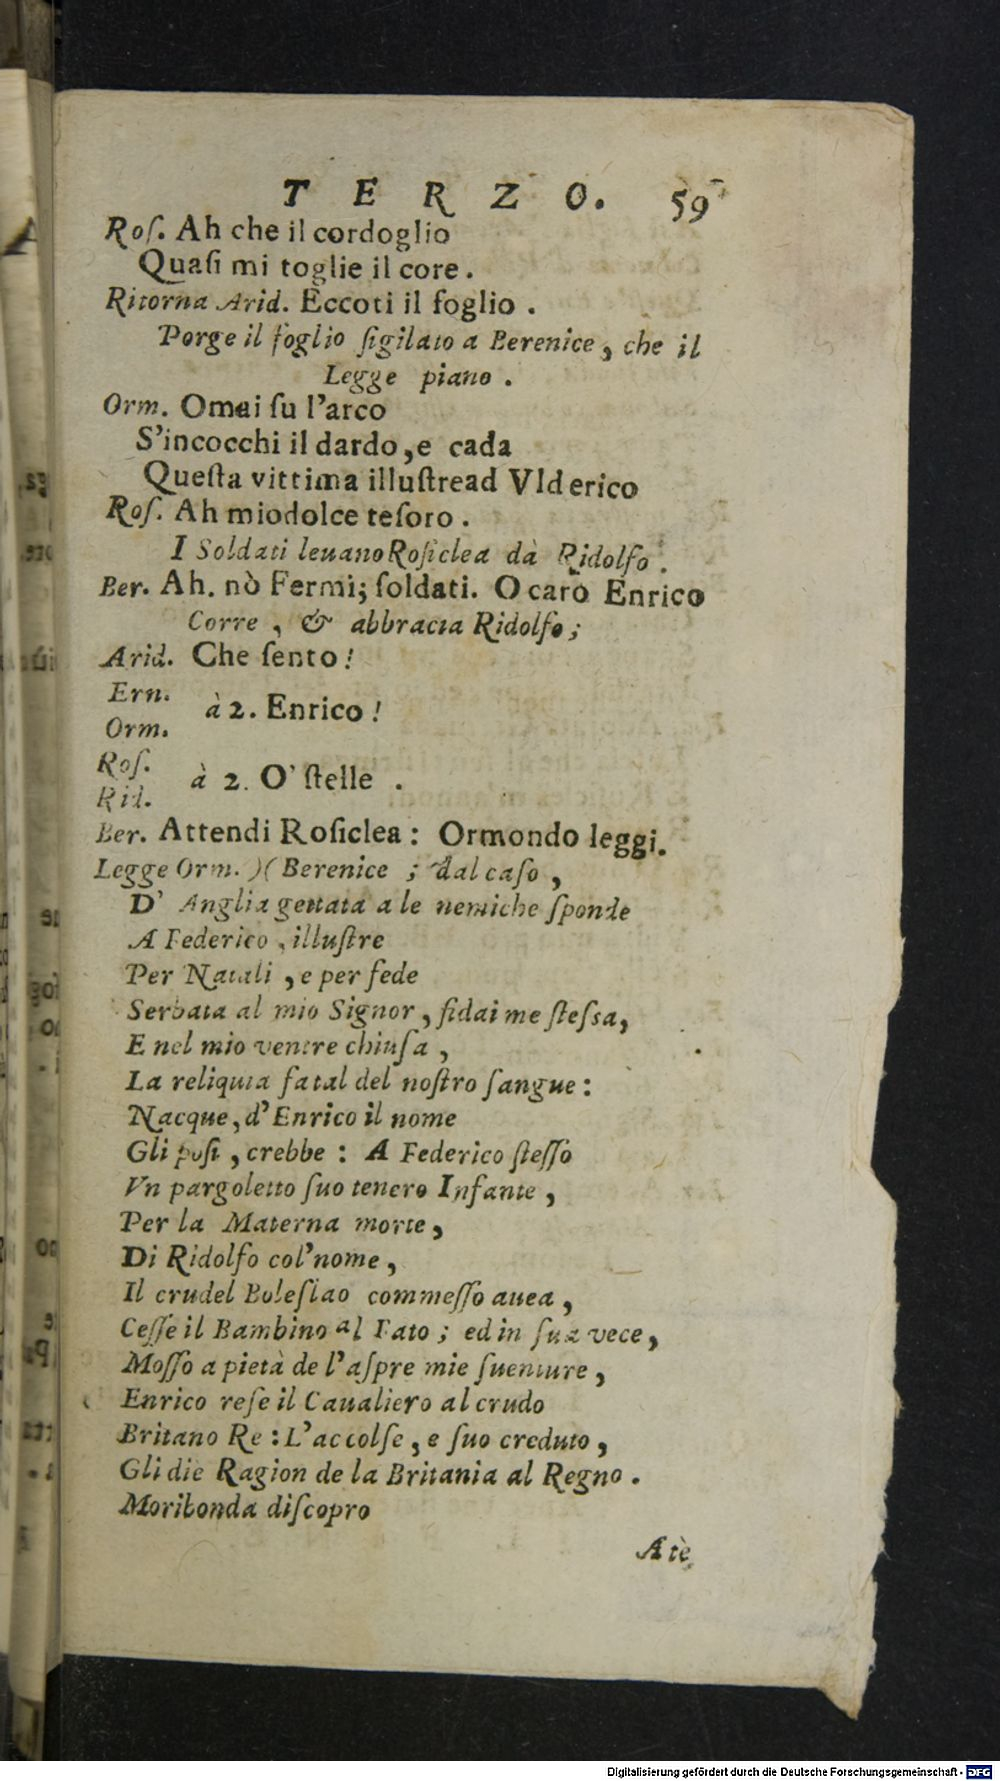 TERZO. 59
Roſ. Ah che il cordoglio
Quaſi mi toglie il core.
Ritorna Arid. Eccoti il foglio.
Porge il foglio ſigilato a Berenice, che il
Legge piano.
Orm. Omai ſu l'arco
S'incocchi il dardo, e cada
Queſta vittima illuſtread Vlderico
Roſ. Ah miodolce teſoro.
I Soldati leuano Roſiclea dà Ridolfo.
Ber. Ah. nò Fermi; ſoldati. O caro Enrico
Corre, & abbracia Ridolfo;
Arid. Che ſento!
Ern.
à 2. Enrico!
Orm.
Roſ.
à 2. O' ſtelle.
Rid.
Ber. Attendi Roſiclea: Ormondo leggi.
Legge Orm. )( Berenice; dal caſo,
D' Anglia gettata a le nemiche ſponde
A Federico, illuſtre
Per Natali, e per fede
Serbata al mio Signor, fidai me ſteſsa,
E nel mio ventre chiuſa,
La reliquia fatal del noſtro ſangue:
Nacque, d'Enrico il nome
Gli poſi, crebbe: A Federico ſteſſo
Vn pargoletto ſuo tenero Infante,
Per la Materna morte,
Di Ridolfo col'nome,
Il crudel Boleſlao commeſſo auea,
Ceſſe il Bambino al Fato; ed in ſua vece,
Moſſo a pietà de l'aſpre mie ſuenture,
Enrico reſe il Caualiero al crudo
Britano Re: L'accolſe, e ſuo creduto,
Gli diè Ragion de la Britania al Regno.
Moribonda diſcopro
A tè
Digitalisierung gefördert durch die Deutsche Forschungsgemeinschaft - DFG